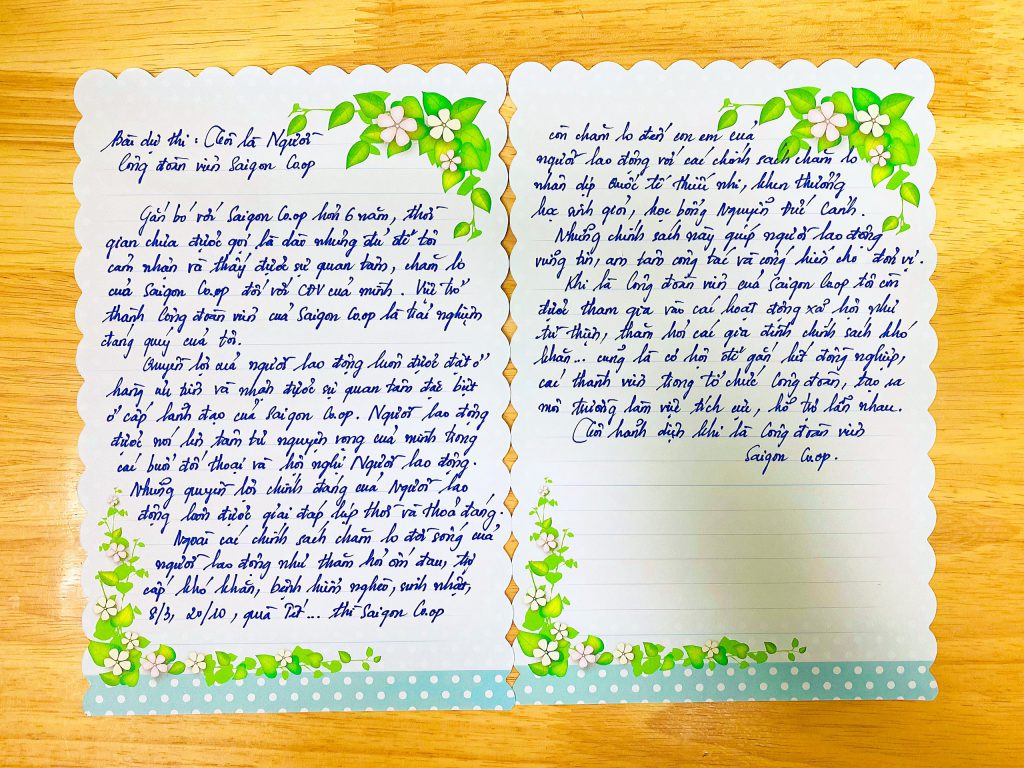 Bài dự thi: Tôi là Người
Công đoàn viên Saigon Co.op
Gắn bó với Saigon Co.op hơn 6 năm, thời
gian chưa được gọi là dào nhưng đủ để tôi
cảm nhận và thấy được sự quan tâm, chăm lo
của Saigon Co.op đối với CĐV của mình. Việc trở
thành Công đoàn viên của Saigon Co.op là trải nghiệm
đáng quý của tôi.
Quyền lợi của người lao động luôn được đặt ở
hàng ưu tiên và nhận được sự quan tâm đặc biệt
ở cấp lãnh đạo của Saigon Co.op. Người lao động
được nói lên tâm tư nguyện vọng của mình trong
các buổi đối thoại và hội nghị Người lao động.
Những quyền lợi chính đáng của Người lao
động luôn được giải đáp kịp thời và thoả đáng.
Ngoài các chính sách chăm lo đời sống của
người lao động như thăm hỏi ốm đau, trợ
cấp khó khăn, bệnh hiểm nghèo, sinh nhật,
8/3, 20/10, quà Tết... thì Saigon Co.op
còn chăm lo đến con em của
người lao động với các chính sách chăm lo
nhân dịp Quốc tế thiếu nhi, khen thưởng
học sinh giỏi, học bổng Nguyễn Đức Cảnh.
Những chính sách này giúp người lao động
vững tin, an tâm công tác và cống hiến cho đơn vị.
Khi là Công đoàn viên của Saigon Co.op tôi còn
được tham gia vào các hoạt động xã hội như
từ thiện, thăm hỏi các gia đình chính sách khó
khăn... cũng là cơ hội để gắn kết đồng nghiệp,
các thành viên trong tổ chức Công đoàn, tạo ra
môi trường làm việc tích cực, hỗ trợ lẫn nhau.
Tôi hãnh diện khi là Công đoàn viên
Saigon Co.op.